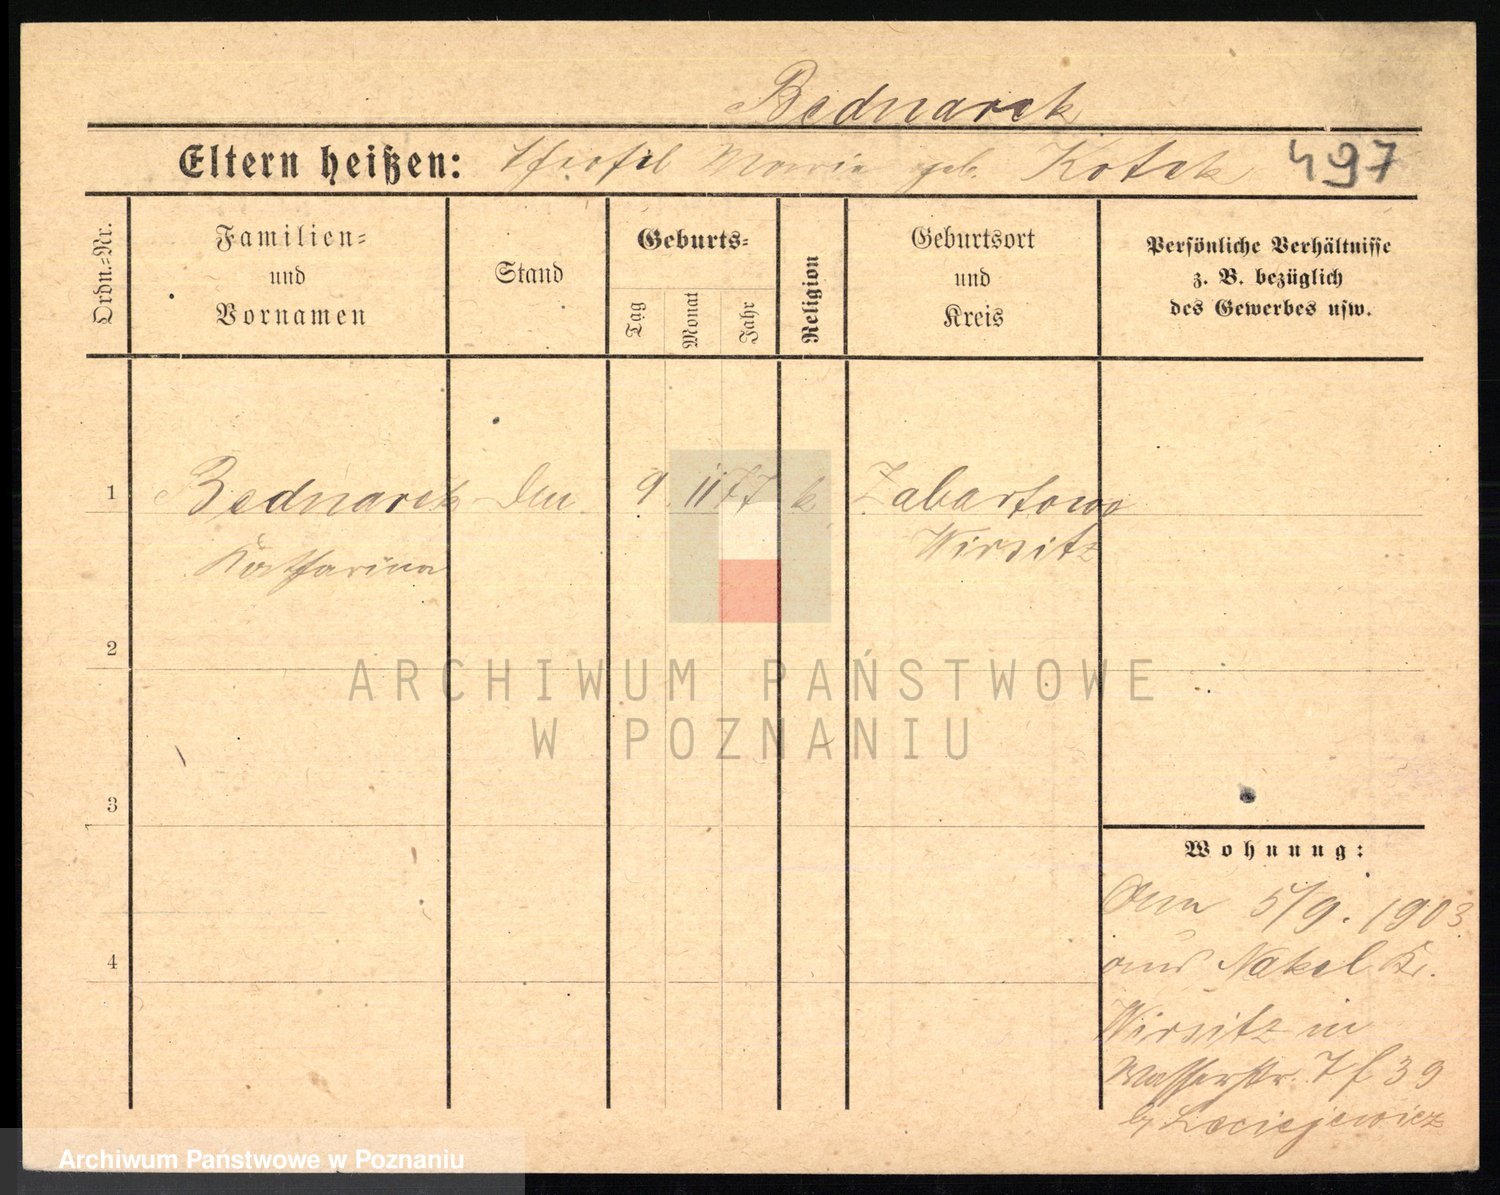 Bednarek
Eltern heißen: Maria geb. Kotek 497
Ordn.-Nr.
Familien-
und
Vornamen
Stand
Geburts-
Tag
Monat
Jahr
Religion
Geburtsort
und
Kreis
Persönliche Verhältnisse
z. B. bezüglich
des Gewerbes usw.
1 Bednarek 9. 11 77 k Zabartowo
Katharina Wirsitz
2
ARCHIWUM PAŃSTWOWE
W POZNANIU
3
Wohnung:
5/9. 1903
aus Nakel Kr.
4
Wirsitz in
Wasserstr. 7 39
Archiwum Państwowe w Poznaniu